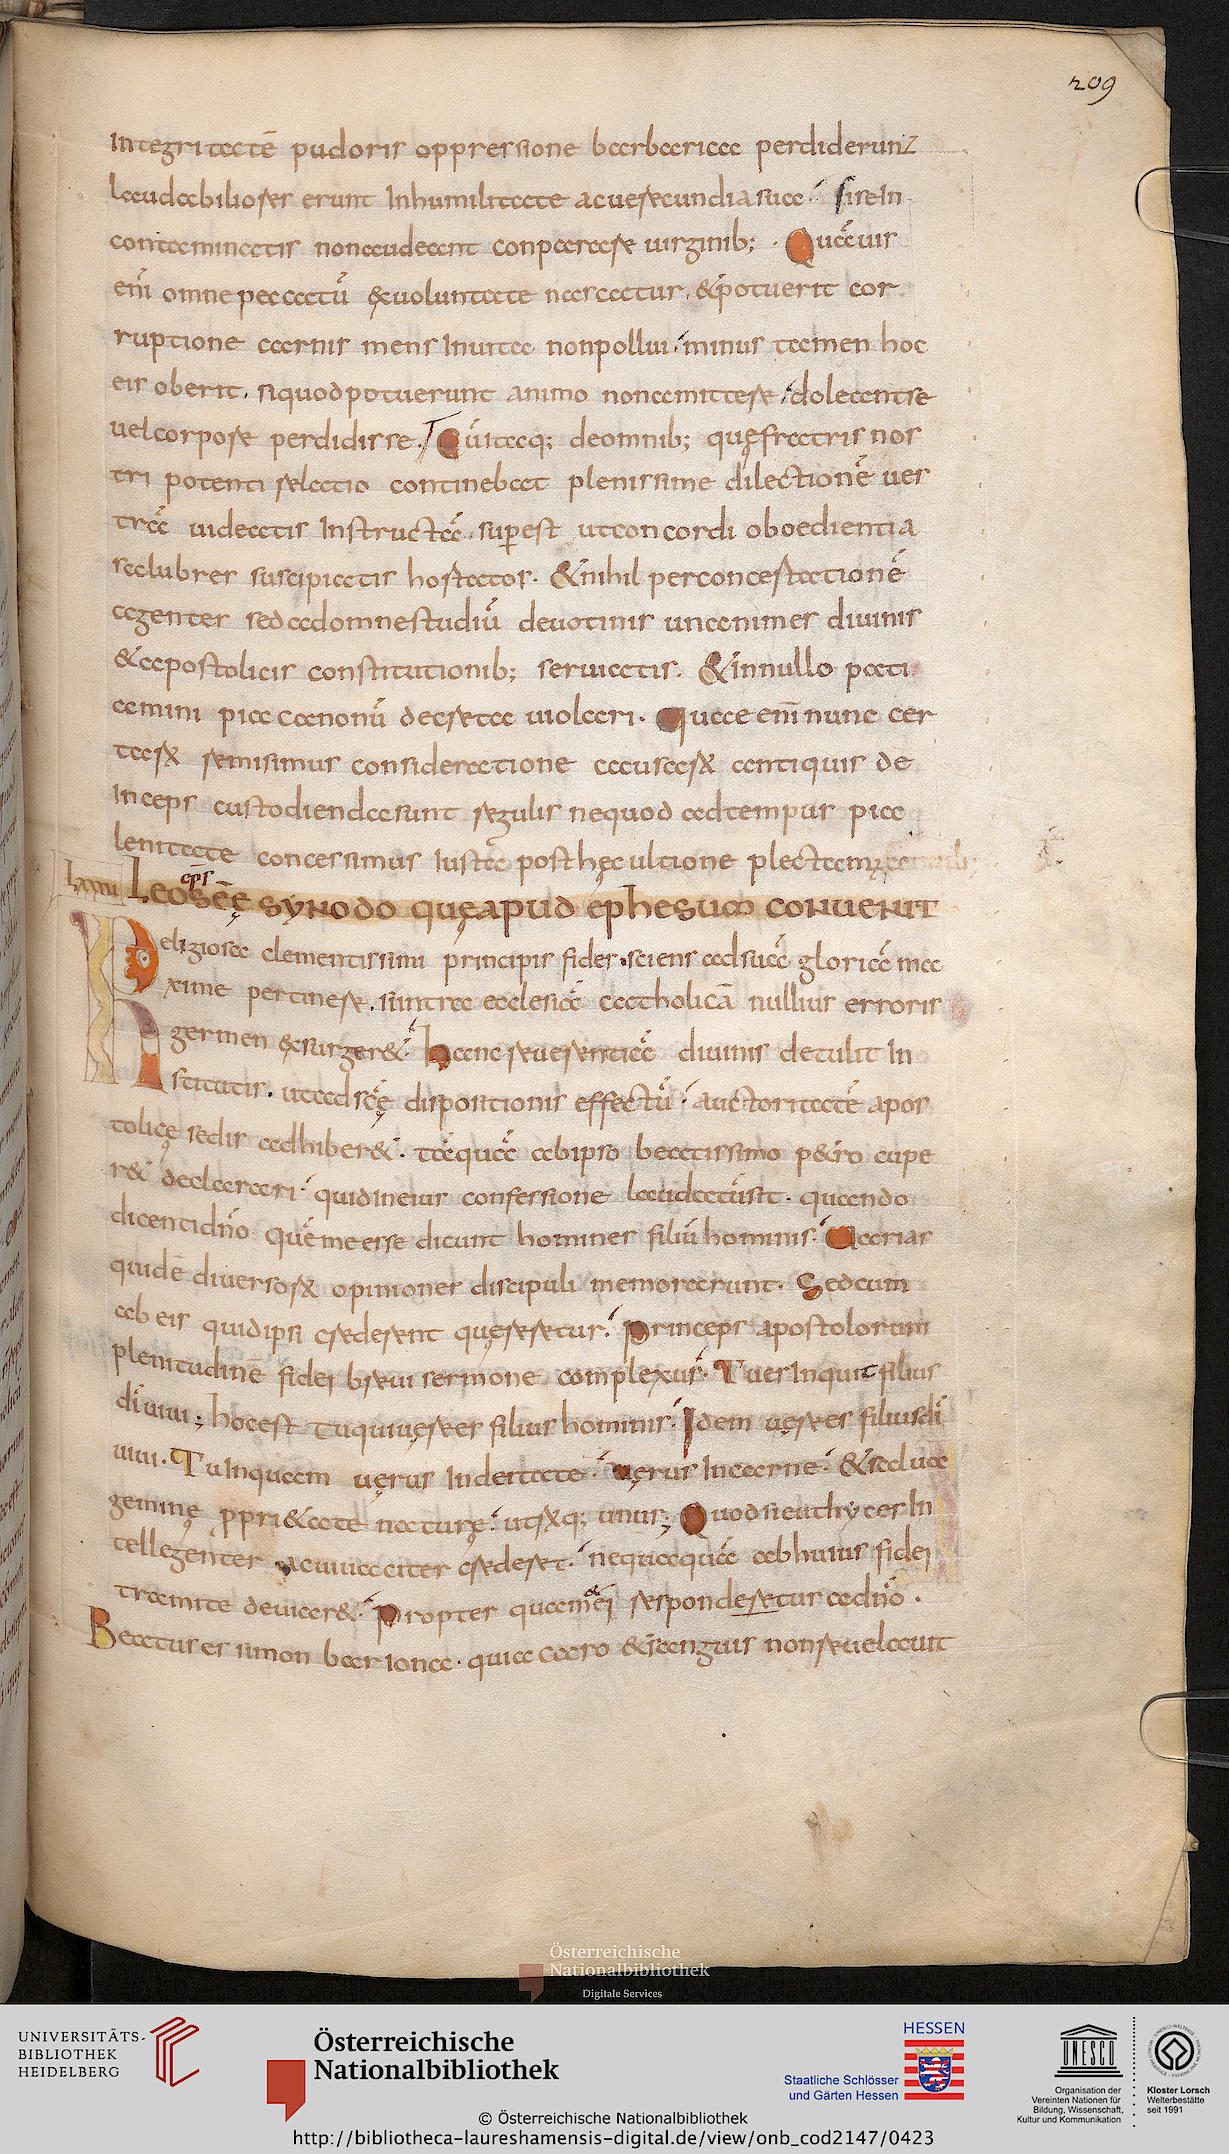 209
Integritatē pudoris oppressione barbarica perdiderunt
laudabiliores erunt Inhumilitate acuerecundia sua si se In
contaminatis nonaudeant conparare uirginib; · Quāuis
enī omne peccatū ęuoluntate nascatur, & potuerit cor
ruptione carnis mens Inuita nonpollui, minus tamen hoc
eis oberit, si quod potuerunt animo nonamittere, doleant se
uelcorpore perdidisse. Cūitaq; deomnib; quęfratris nos
tri potenti relatio continebat plenissime dilectionē ues
trā uideatis Instructā, superest utconcordi oboedientia
salubres suscipiatis hortatos. & nihil perconcertationē
agentes sed adomne studiū deuotinis unanimes diuinis
& apostolicis constitutionib; seruiatis. & innullo pati
amini pia canonū decreta uiolari. Quae enī nunc cer
tarx remisimus consideratione causarx antiquis de
Inceps custodienda sunt regulis nequod adtempus pia
lenitate concessimus Iustā posthęc ultione plectam;
Lxxuii Leo eps scāę synodo quęapud ephesum conuenit
Religiosa clementissimi principis fides sciens adsuā gloriā ma
xime pertinere, si intra ecclesiā catholicā nullius erroris
germen ęsurger& hanc reuerentiā diuinis detulit In
stitutis. utad scę dispositionis effectū auctoritatē apos
tolicę sedis adhiber&. tāquā abipso beatissimo p&ro cupe
r& declarari quidineius confessione laudatūsit. quando
dicentidn̄o quēmeesse dicunt homines filiū hominis. Acarias
quidē diuersorx opiniones discipuli memorarunt. Sedcum
ab eis quidipsi crederent quęreretur. princeps apostolorum
plenitudinē fidei breui sermone complexus. Tues Inquit filius
dī uiui; hocest tuquiueres filius hominis. Idem uęres filiusdī
uiui. Tu Inquam uęrus Indeitate uęrus Incarne & salua
geminę propri&ate naturę utrxq; unus; Quod si euthyces In
tellegenter acuiuaciter crederet nequaquā abhuius fidei
tramite deuiar&. Propter quam & ei responderetur adn̄o.
Beatus es simon bar iona. quia caro & sanguis non reuelauit
Österreichische
Nationalbibliothek
Digitale Services
UNIVERSITÄTS-
BIBLIOTHEK
HEIDELBERG
Österreichische
Nationalbibliothek
HESSEN
Staatliche Schlösser
und Gärten Hessen
UNESCO
Organisation der
Vereinten Nationen für
Bildung, Wissenschaft,
Kultur und Kommunikation
Kloster Lorsch
Welterbestätte
seit 1991
© Österreichische Nationalbibliothek
http://bibliotheca-laureshamensis-digital.de/view/onb_cod2147/0423